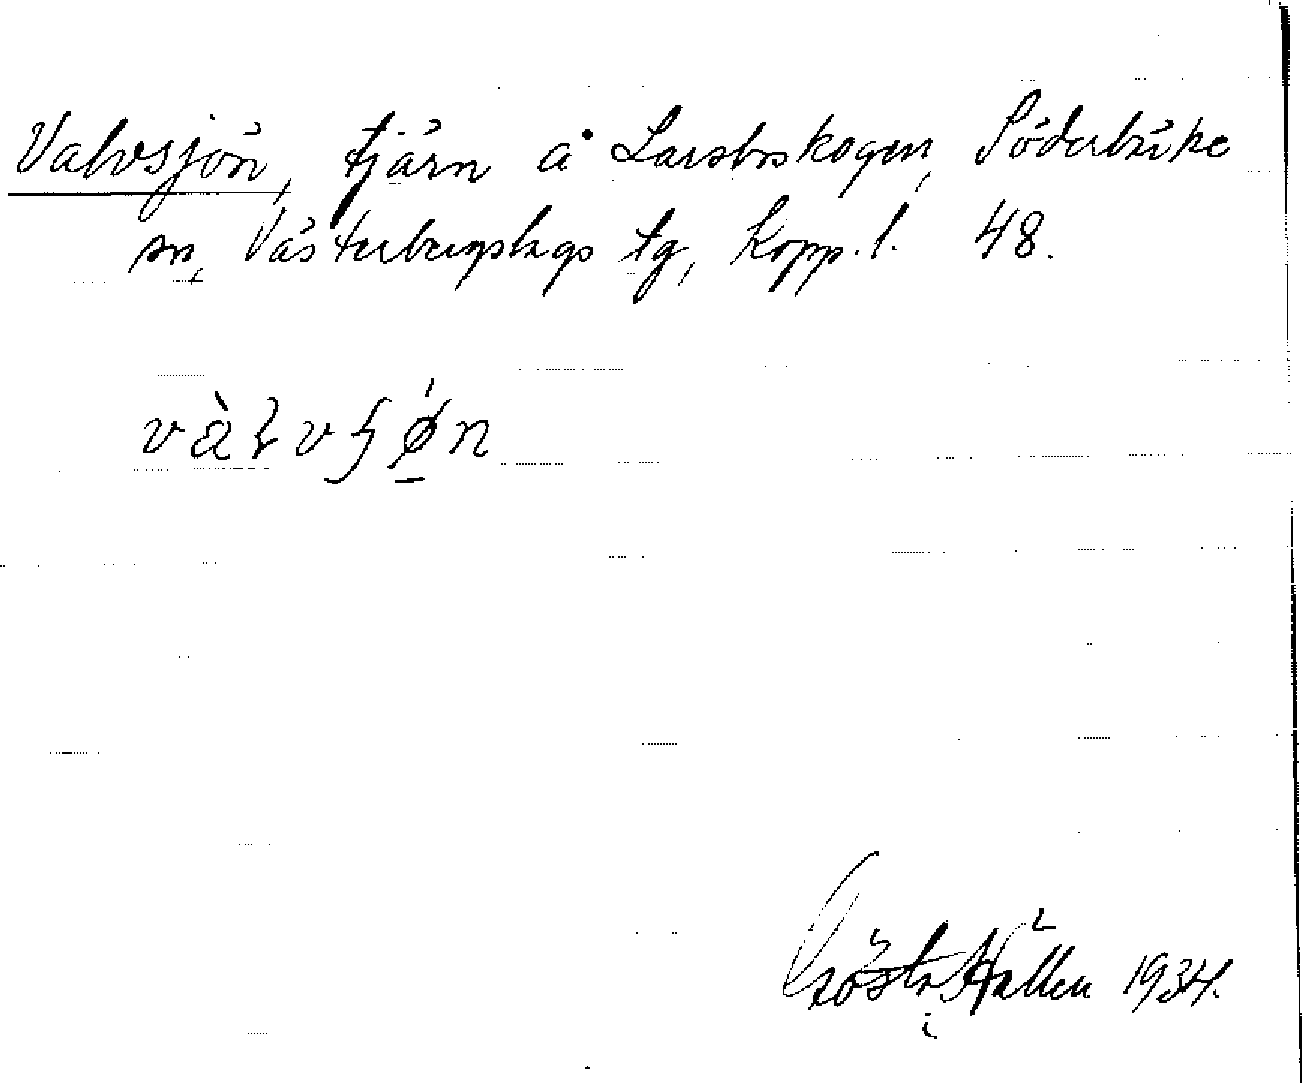 Valvsjön, tjärn å Larsboskogen, Söderbärke
sn, Västerbergslags tg, Kopp. l. 48.
Gösta Hallén 1934.